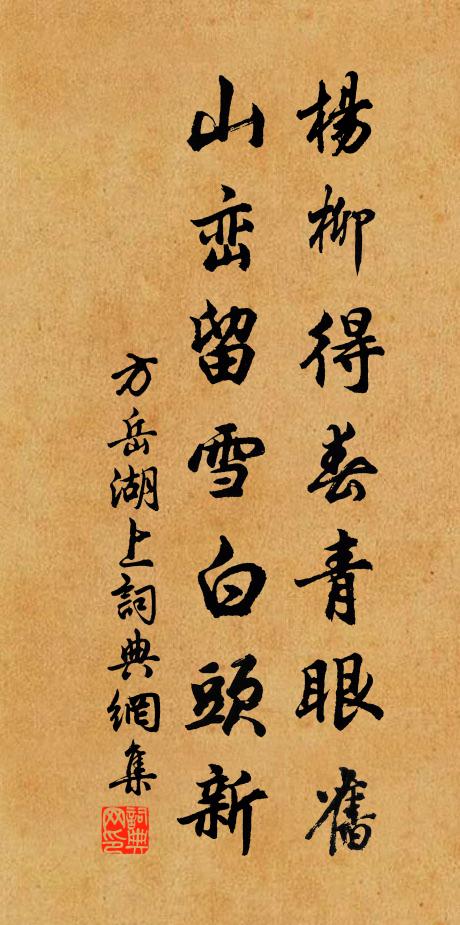 楊柳得春青眼舊
山峦留雪白頭新
方岳湖上詞典網集
詞典网印